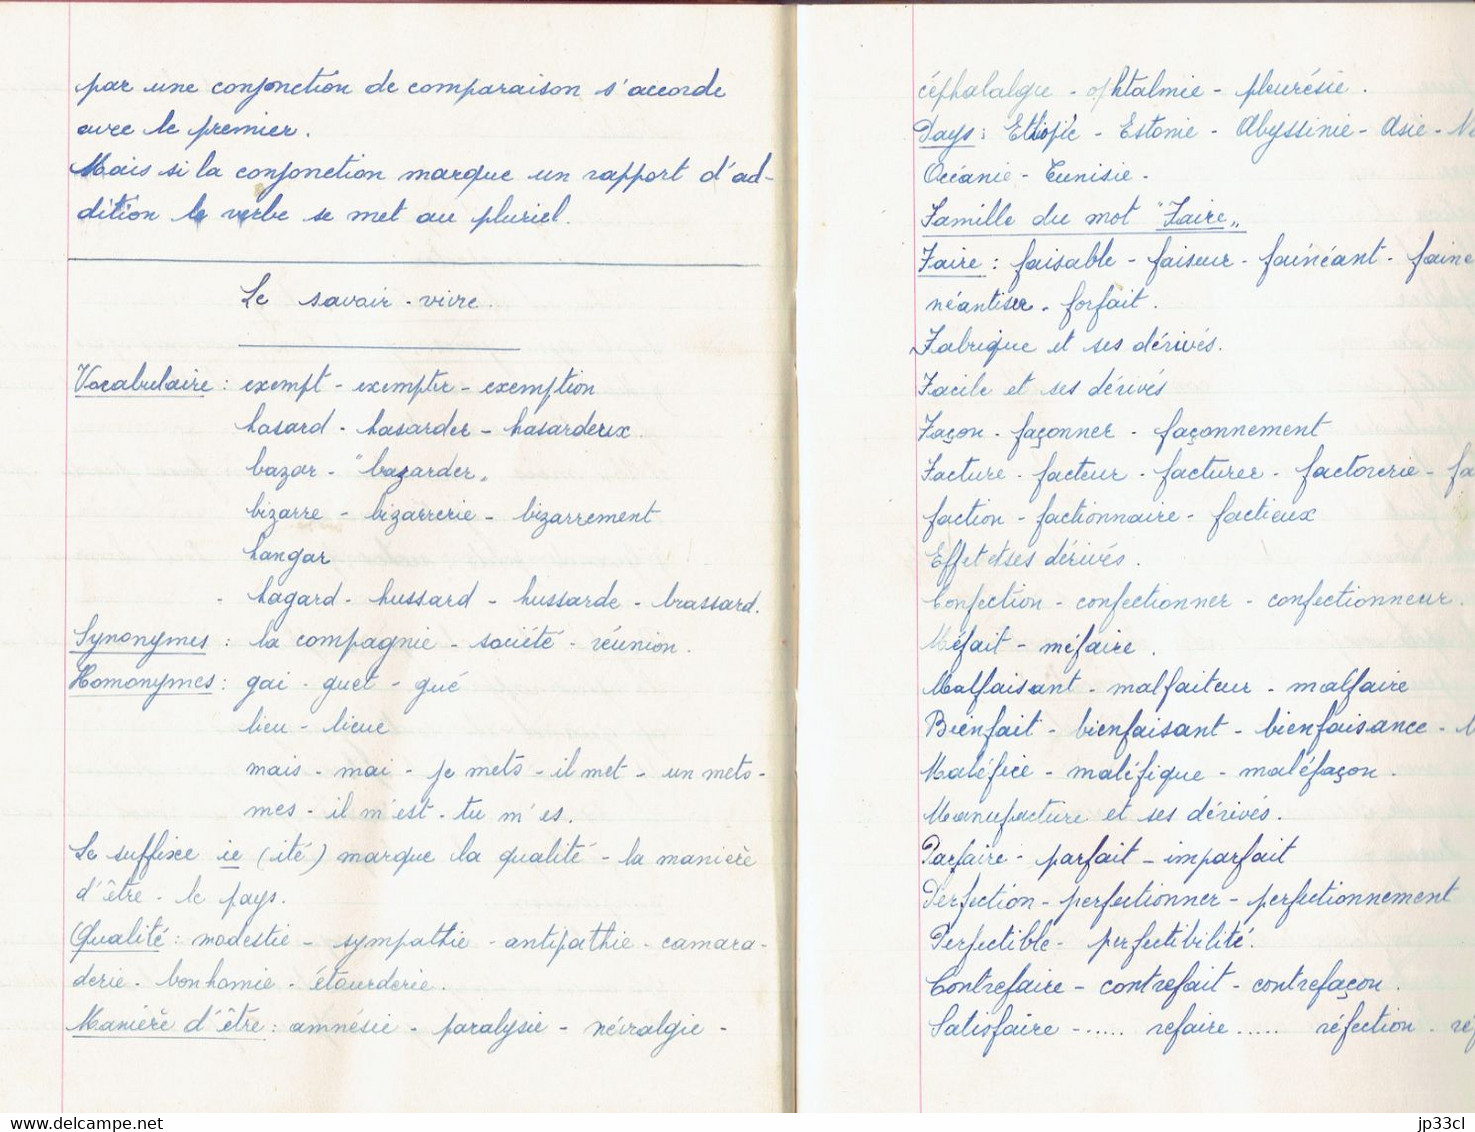 par une conjonction de comparaison s'accorde
avec le premier.
Mais si la conjonction marque un rapport d'ad-
dition le verbe se met au pluriel.
Le savoir-vivre.
Vocabulaire : exempt - exempter - exemption
hasard - hasarder - hasardeux.
bazar - "bazarder„
bizarre - bizarrerie - bizarrement
hangar
hagard - hussard - hussarde - brassard.
Synonymes : la compagnie - société - réunion.
Homonymes : gai - guet - gué
lieu - lieue
mais - mai - je mets - il met - un mets -
mes - il m'est - tu m'es.
Le suffixe ie (ité) marque la qualité - la manière
d'être - le pays.
Qualité : modestie - sympathie - antipathie - camara-
derie - bonhomie - étourderie.
Manière d'être : amnésie - paralysie - névralgie -
céphalalgie - ophtalmie - pleurésie.
Pays : Ethiopie - Estonie - Abyssinie - Asie -
Océanie - Tunisie -
Famille du mot "Faire„
Faire : faisable - faiseur - fainéant - faine
néantiser - forfait.
Fabrique et ses dérivés.
Facile et ses dérivés
Façon - façonner - façonnement
Facture - facteur - facturer - factorerie - fa
faction - factionnaire - factieux
Effet et ses dérivés.
Confection - confectionner - confectionneur.
Méfait - méfaire.
Malfaisant - malfaiteur - malfaire
Bienfait - bienfaisant - bienfaisance -
Maléfice - maléfique - maléfaçon.
Manufacture et ses dérivés.
Parfaire - parfait - imparfait
Perfection - perfectionner - perfectionnement
Perfectible - perfectibilité.
Contrefaire - contrefait - contrefaçon.
Satisfaire - ..... refaire ..... réfection - réf
www.delcampe.net
jp33cl